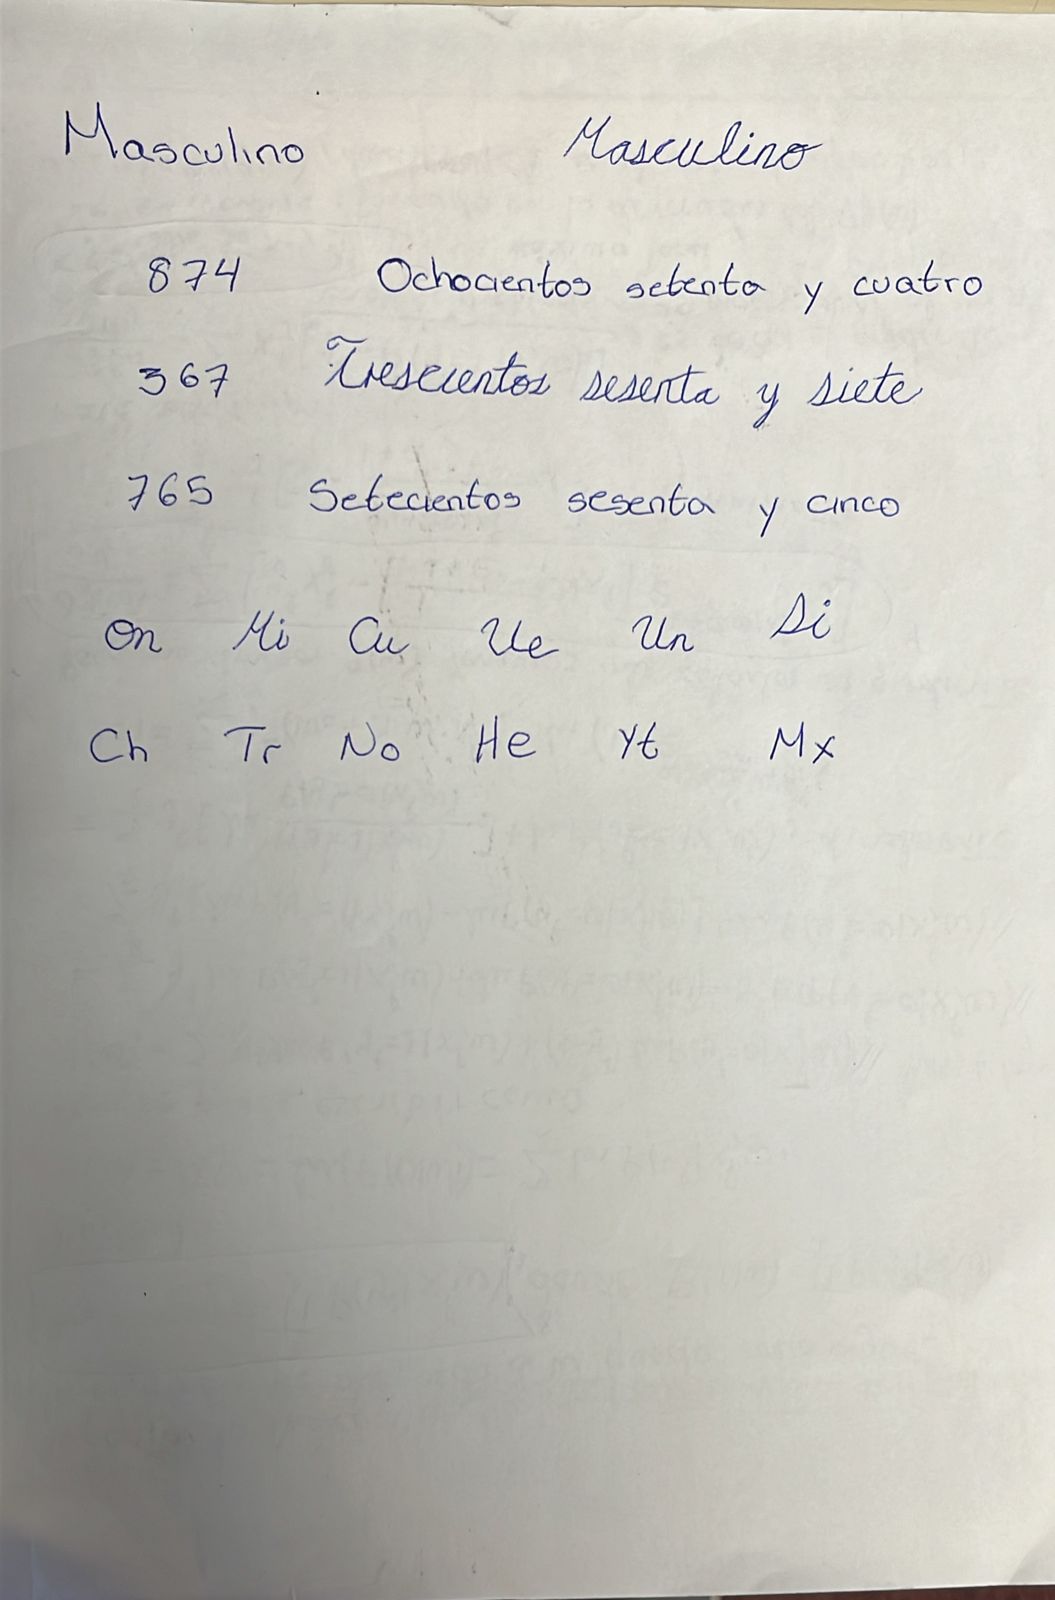 Masculino Masculino
874 Ochocientos setenta y cuatro
367 Trescientos sesenta y siete
765 Setecientos sesenta y cinco
On Mi Cu Ve Un Di
Ch Tr No He Yt Mx